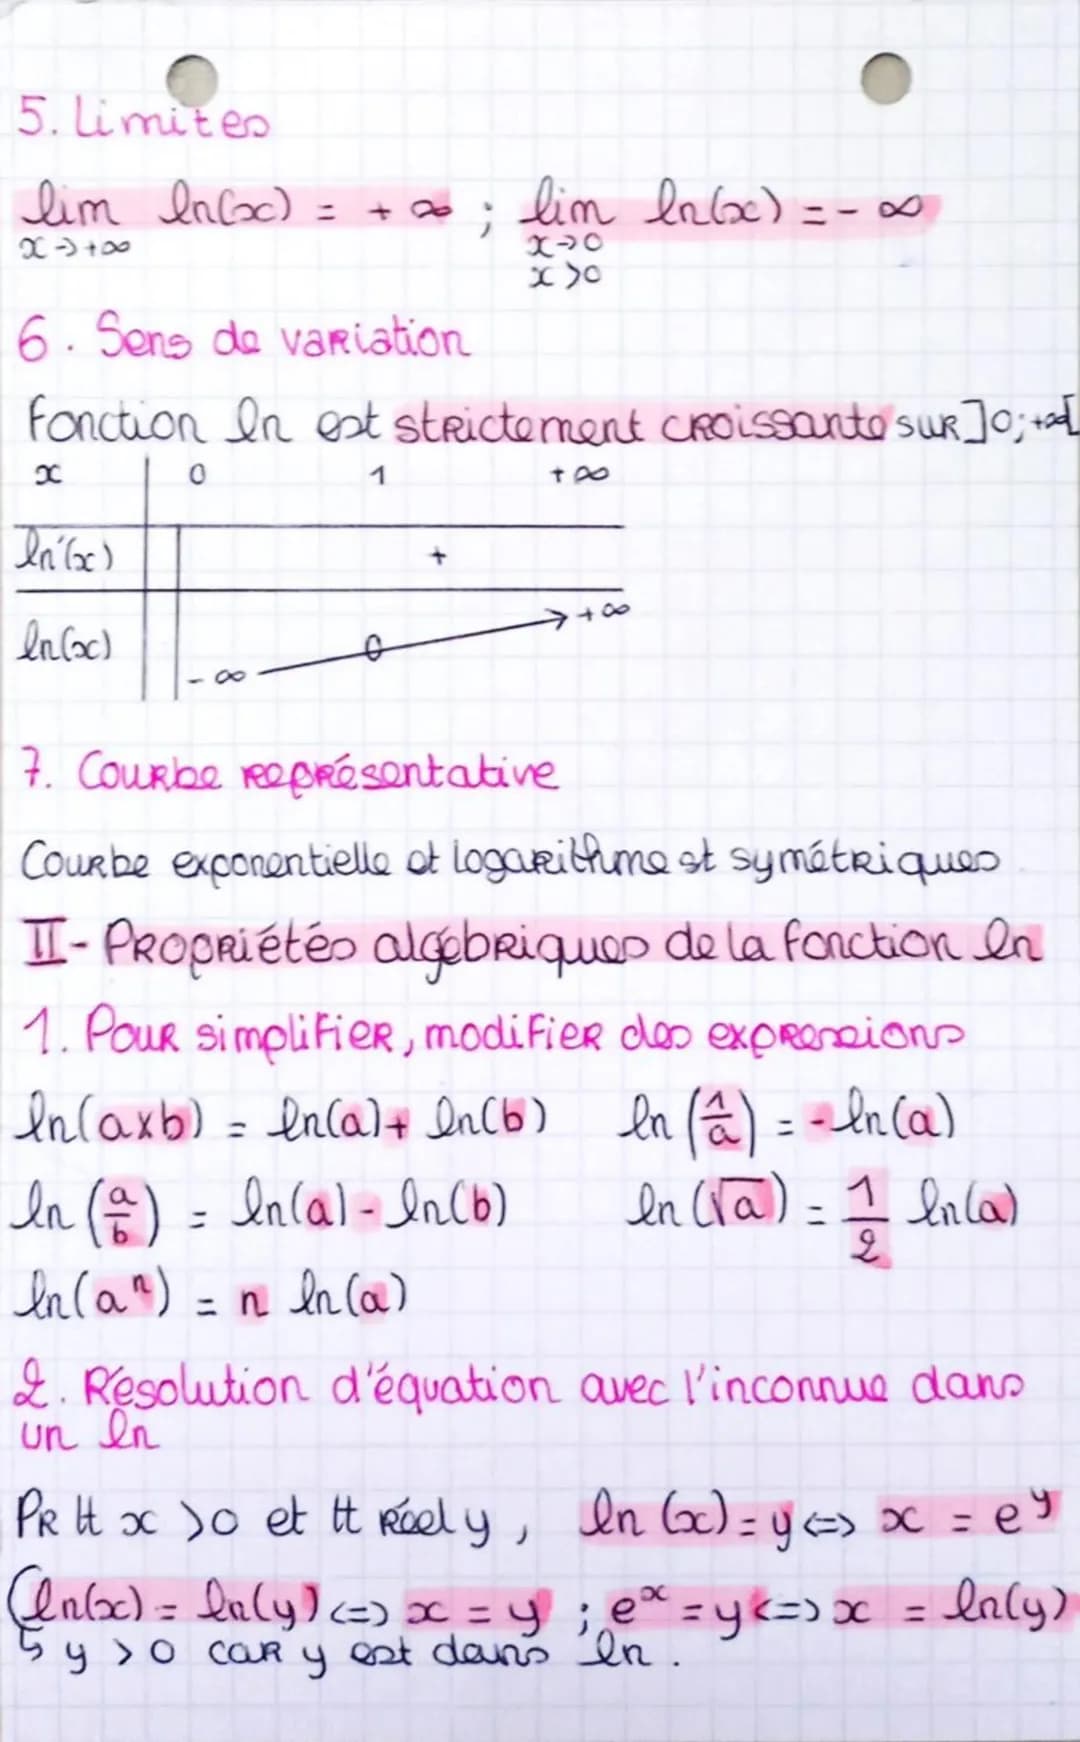 5. Limites
lim ln(x) = +∞ ; lim ln(x) = -∞
x→+∞ x→0
x>0
6. Sens de variation
Fonction ln est strictement croissante sur ]0;+∞[
x 0 1 +∞
ln'(x) +
ln(x) -∞ 0 +∞
7. Courbe représentative
Courbe exponentielle et logarithme st symétriques
II- Propriétés algébriques de la fonction ln
1. Pour simplifier, modifier des expressions
ln(a×b) = ln(a) + ln(b) ln(1/a) = -ln(a)
ln(a/b) = ln(a) - ln(b) ln(√a) = 1/2 ln(a)
ln(aⁿ) = n ln(a)
2. Résolution d'équation avec l'inconnue dans
un ln
Pr tt x >0 et tt réel y, ln(x)=y <=> x = e^y
(ln(x) = ln(y) <=> x = y ; e^x = y <=> x = ln(y)
↳ y >0 car y est dans ln.